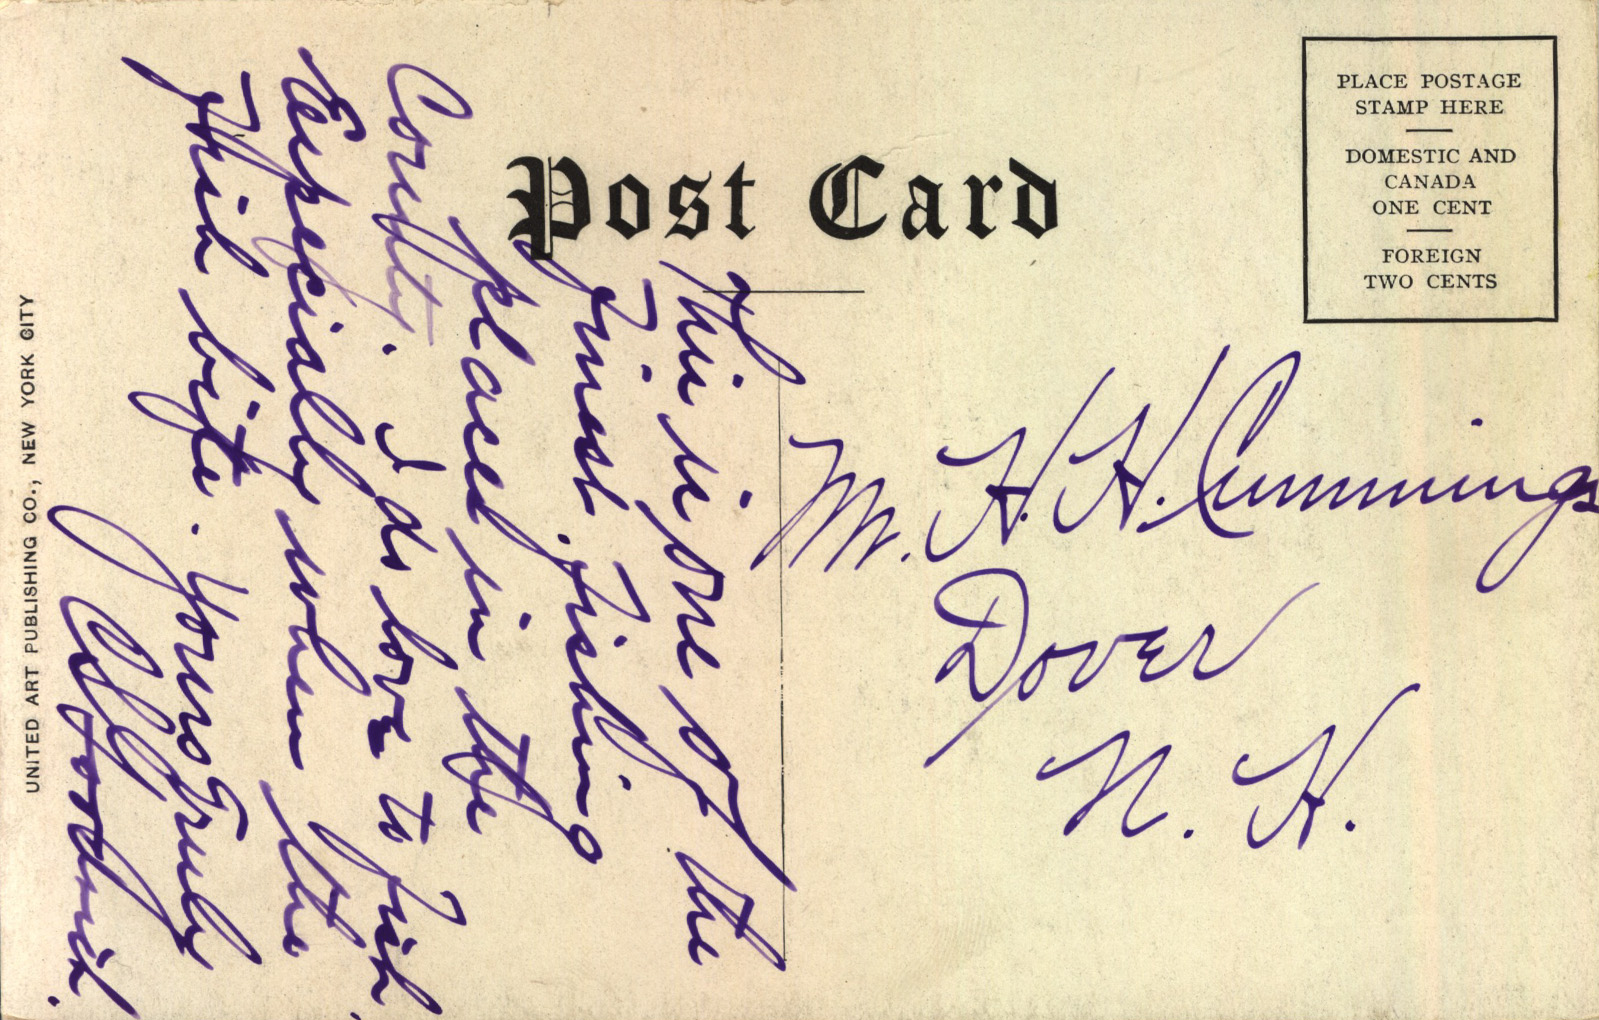 Post Card
PLACE POSTAGE
STAMP HERE
DOMESTIC AND
CANADA
ONE CENT
FOREIGN
TWO CENTS
This is one of the
Finest Fishing
places in the
County. I do love to Fish
Especially when the
Fish bite. Yours Truly
Mr. H. H. Cummings
Dover
N. H.
UNITED ART PUBLISHING CO., NEW YORK CITY